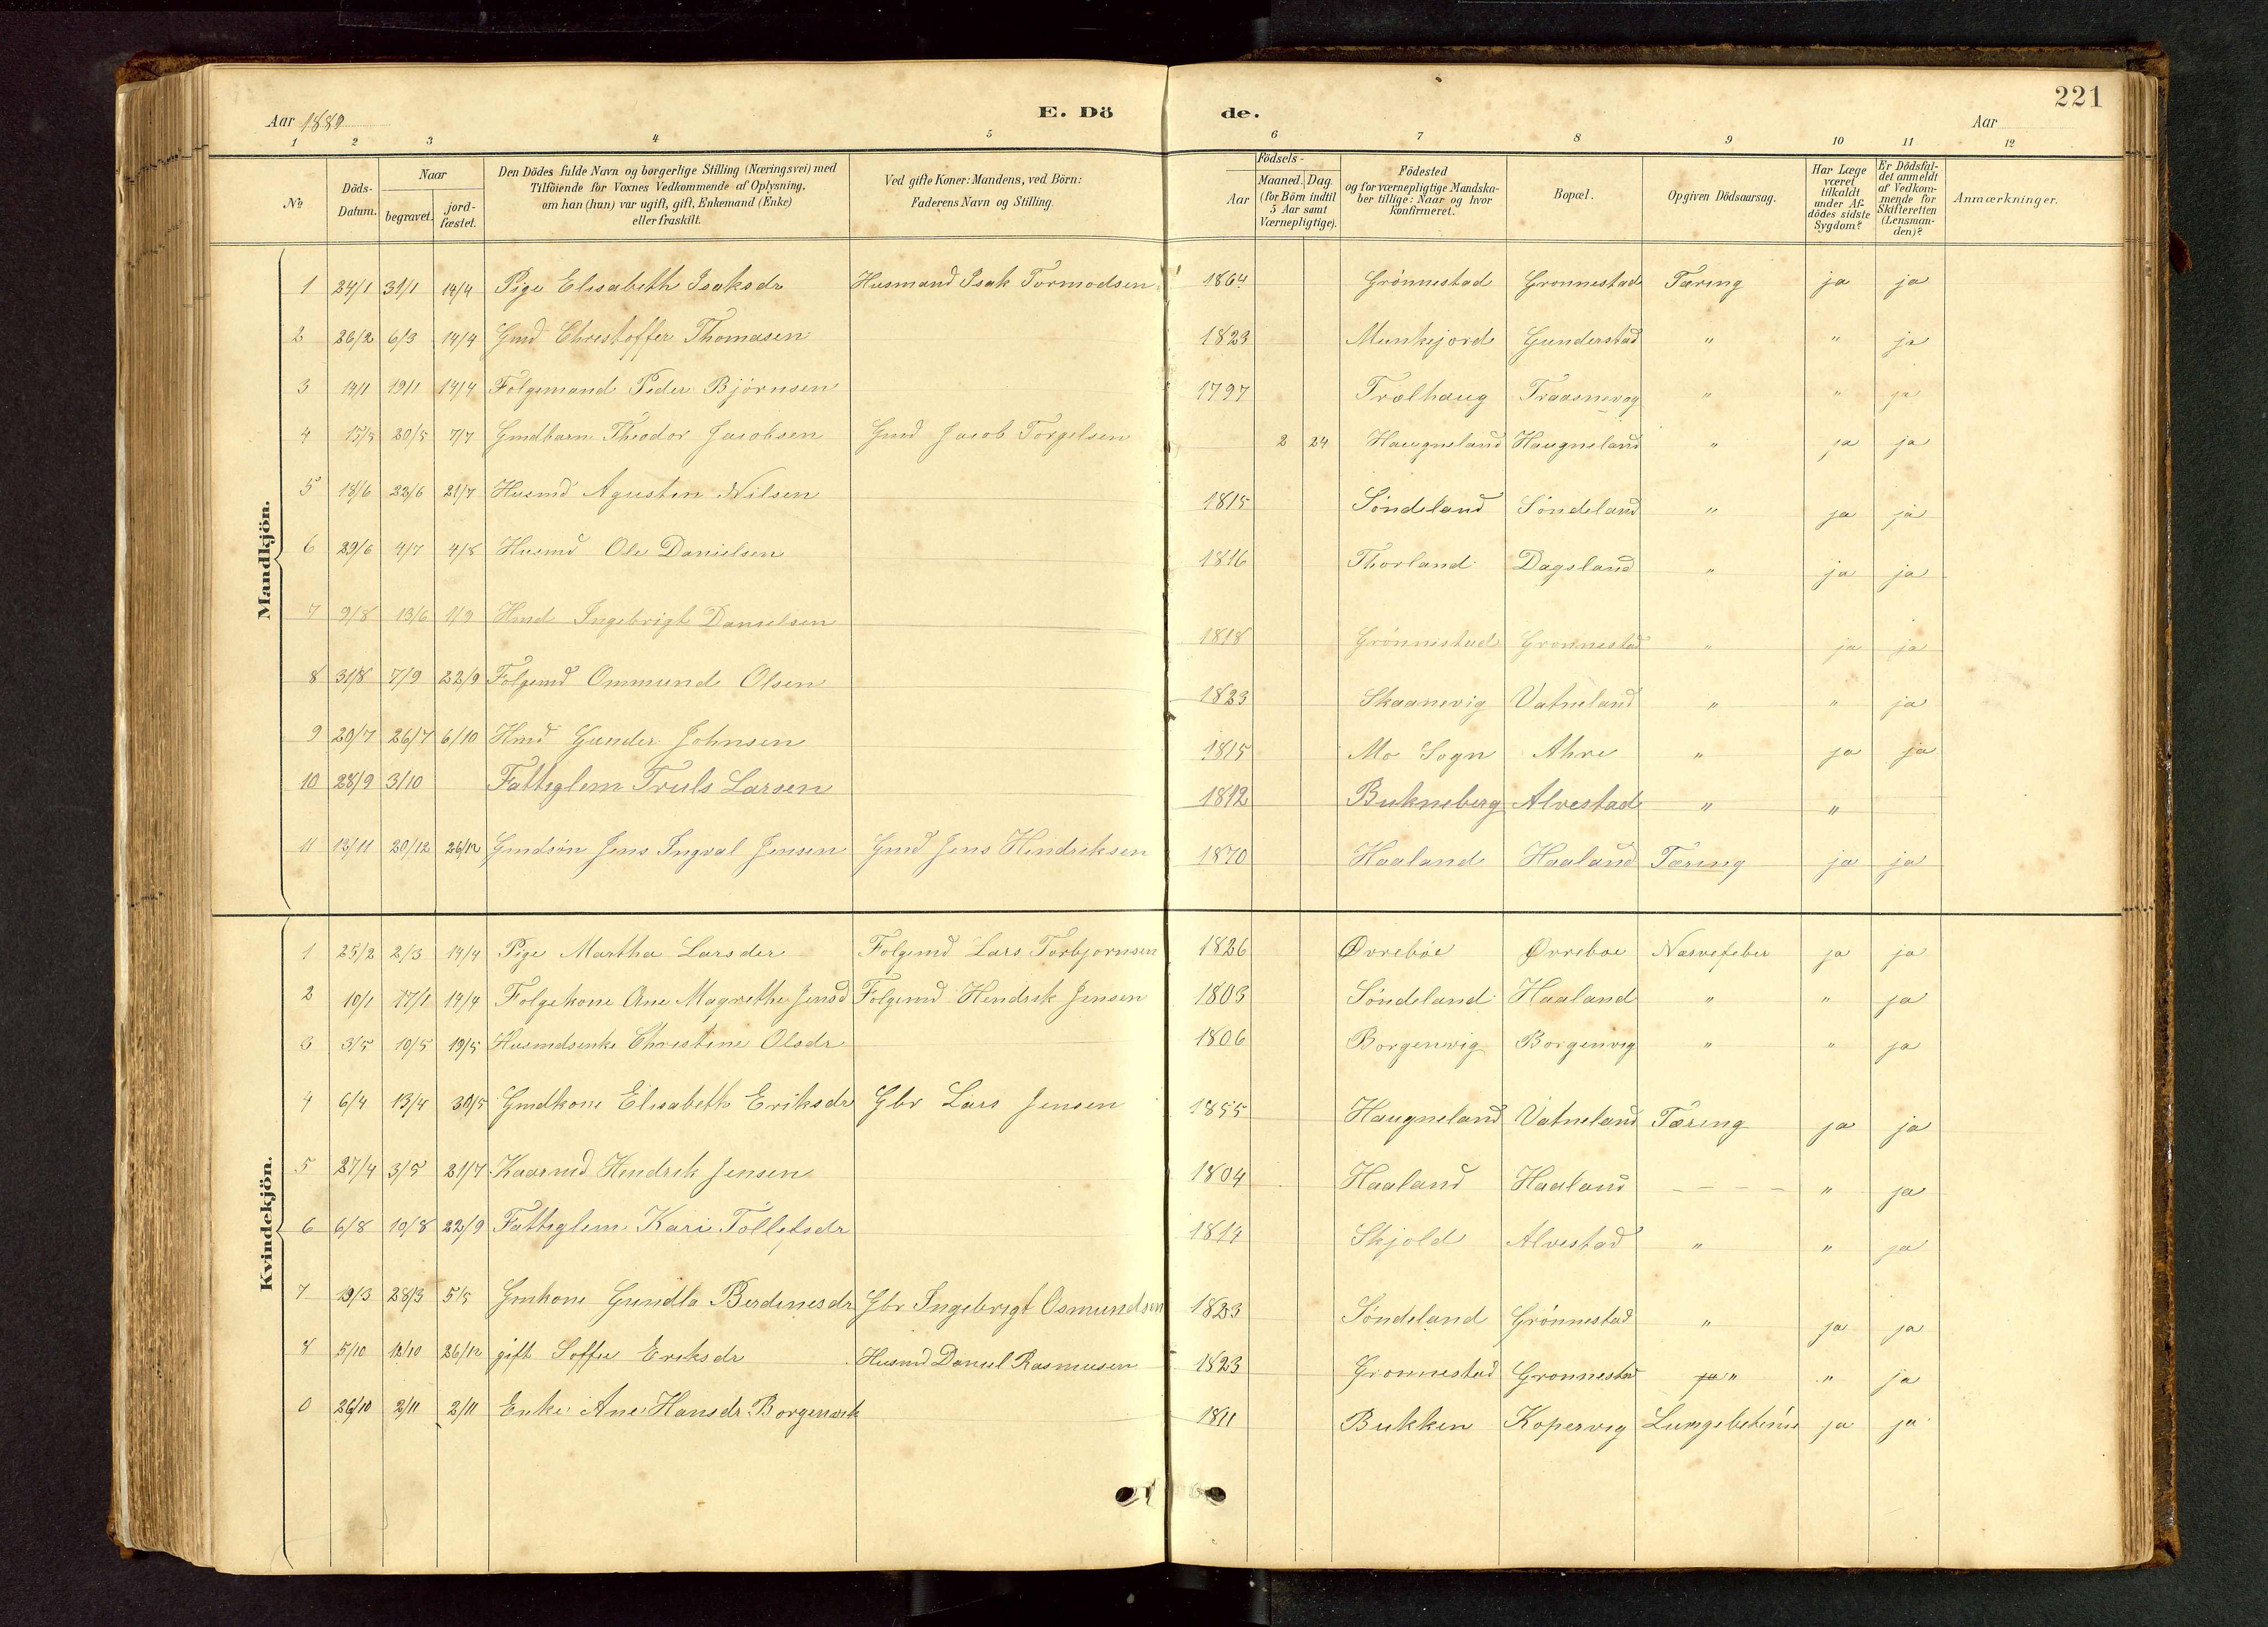 221
Aar 1889
E. Dö
de.
Aar
1 2 3 4 5 6 7 8 9 10 11 12
No
Döds-
Datum.
Naar
begravet.
jord-
fæstet.
Den Dödes fulde Navn og borgerlige Stilling (Næringsvei) med
Tilföiende for Voxnes Vedkommende af Oplysning,
om han (hun) var ugift, gift, Enkemand (Enke)
eller fraskilt.
Ved gifte Koner: Mandens, ved Börn:
Faderens Navn og Stilling.
Födsels-
Aar
Maaned. Dag.
(for Börn indtil
5 Aar samt
Værnepligtige).
Födested
og for værnepligtige Mandska-
ber tillige: Naar og hvor
konfirmeret.
Bopæl.
Opgiven Dödsaarsag.
Har Læge
været
tilkaldt
under Af-
dödes sidste
Sygdom?
Er Dödsfal-
det anmeldt
af Vedkom-
mende for
Skifteretten
(Lensman-
den)?
Anmærkninger.
Mandkjön.
1 24/1 31/1 14/4 Pige Elisabeth Isaksdr Husmand Isak Tormodsen 1864 Grönnestad Gronnestad Tæring ja ja
2 26/2 6/3 14/4 Gmd Chrestoffer Thomasen 1823 Munkejord Gunderstad " " ja
3 14/1 19/1 14/4 Folgemand Peder Björnsen 1797 Trælhaug Traasnevog " " ja
4 15/5 20/5 7/7 Gmdbarn Theodor Jacobsen Gmd Jacob Torgelsen 2 24 Haugneland Haugneland " ja ja
5 18/6 22/6 21/7 Husmd Agusten Nilsen 1815 Söndeland Söndeland " ja ja
6 29/6 4/7 4/8 Husmd Ole Danielsen 1816 Thorland Dagsland " ja ja
7 9/8 13/6 1/9 Hmd Ingebrigt Danielsen 1818 Grönnestad Gronnestad " ja ja
8 31/8 7/9 22/9 Folgemd Ommund Olsen 1823 Skaanevig Vatneland " " ja
9 20/7 26/7 6/10 Hmd Gunder Johnsen 1815 Mo Sogn Ahre " ja ja
10 28/9 3/10 Fattiglem Truls Larsen 1812 Bukneberg Alvestad " "
11 13/11 20/12 26/12 Gmdsön Jens Ingval Jensen Gmd Jens Hendriksen 1870 Haaland Haaland Tæring ja ja
Kvindekjön.
1 25/2 2/3 14/4 Pige Martha Larsder Folgemd Lars Torbjornsen 1826 Øvreböe Øvreboe Narvefeber ja ja
2 10/1 17/1 14/4 Folgekone Ane Magrethe Jensd Folgemd Hendrik Jensen 1803 Söndeland Haaland " " ja
3 3/5 10/5 19/5 Husmdsenke Christine Olsdr 1806 Borgenvig Borgenvig " " ja
4 6/4 13/4 30/5 Gmdkone Elisabeth Eriksdr Gbr Lars Jensen 1855 Haugneland Vatneland Tæring ja ja
5 27/4 3/5 21/7 Kaarmd Hendrik Jensen 1804 Haaland Haaland - - - - " ja
6 6/8 10/8 22/9 Fattiglem Kari Tollefsdr 1814 Skjold Alvestad " " ja
7 19/3 28/3 5/5 Gmkone Gundla Berdinesdr Gbr Ingebrigt Osmundsen 1823 Söndeland Grönnestad " ja ja
8 5/10 12/10 26/12 gift Soffie Eriksdr Husmd Daniel Rasmusen 1823 Gronnestad Gronnestad " " ja
0 26/10 2/11 2/11 Enke Ane Hansdr Borgenvik 1811 Bukken Kopervig ja ja